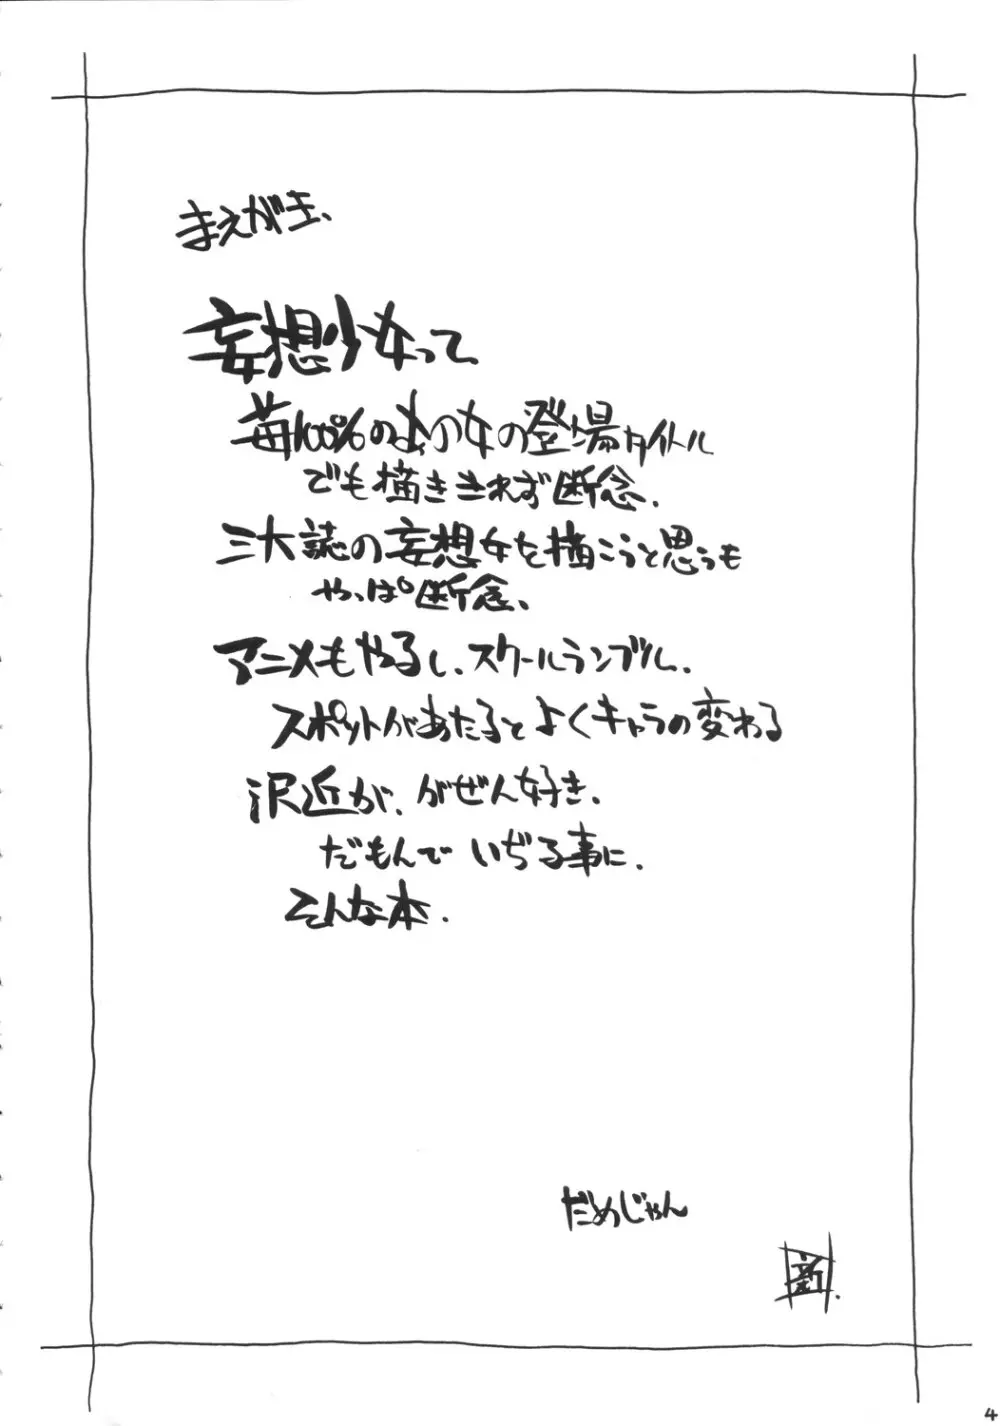 まえがき、
妄想少女って
苺100%のあの女の登場タイトル
でも描ききれず断念.
三大誌の妄想女を描こうと思うも
やっぱ断念、
アニメもやるし、スクールランブル、
スポットがあたるとよくキャラの変わる
沢近が、がぜん好き、
だもんで いぢる事に.
そんな本.
だめじゃん
新.
4